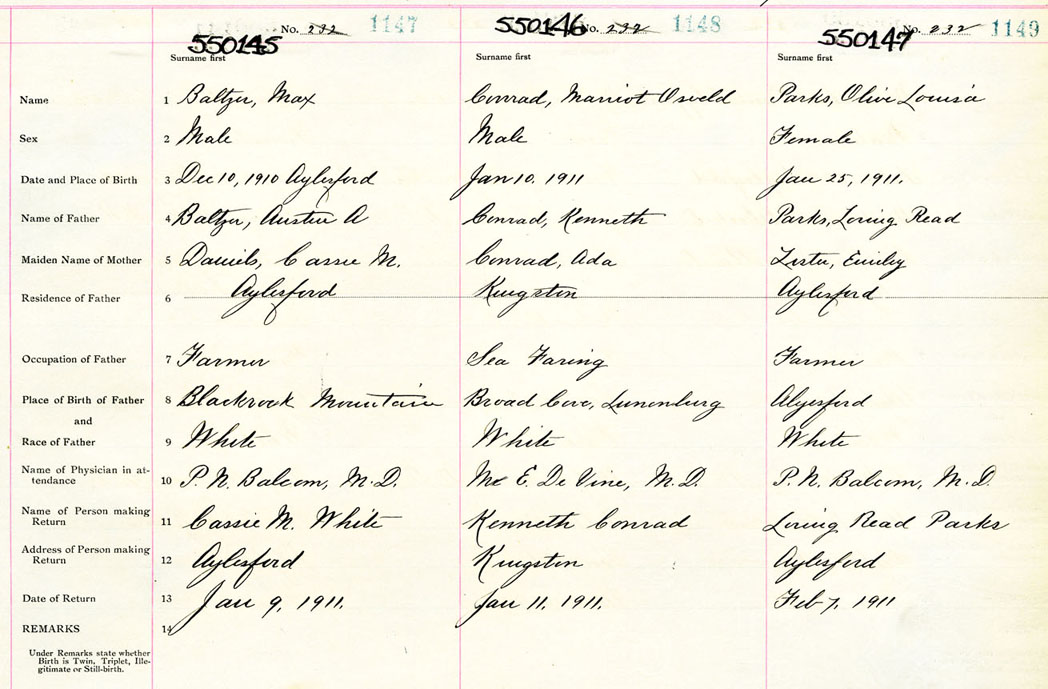 No. 232 1147 No. 232 1148 No. 232 1149
550145 550146 550147
Surname first Surname first Surname first
Name 1 Baltzer, Max Conrad, Marriot Osveld Parks, Olive Louisa
Sex 2 Male Male Female
Date and Place of Birth 3 Dec 10, 1910 Aylesford Jan 10. 1911 Jan 25, 1911.
Name of Father 4 Baltzer, Austin A Conrad, Kenneth Parks, Loring Read
Maiden Name of Mother 5 Daniels, Cassie M. Conrad, Ada Emiley
Residence of Father 6 Aylesford Kingston Aylesford
Occupation of Father 7 Farmer Sea Faring Farmer
Place of Birth of Father 8 Blackrock Mountain Broad Cove, Lunenburg Alyesford
and
Race of Father 9 White White White
Name of Physician in at-
tendance 10 P. N. Balcom, M.D. E. De Vine, M.D. P. N. Balcom, M.D.
Name of Person making
Return 11 Cassie M. White Kenneth Conrad Loring Read Parks
Address of Person making
Return 12 Aylesford Kingston Aylesford
Date of Return 13 Jan 9, 1911. Jan 11. 1911. Feb 7, 1911
REMARKS 14
Under Remarks state whether
Birth is Twin, Triplet, Ille-
gitimate or Still-birth.